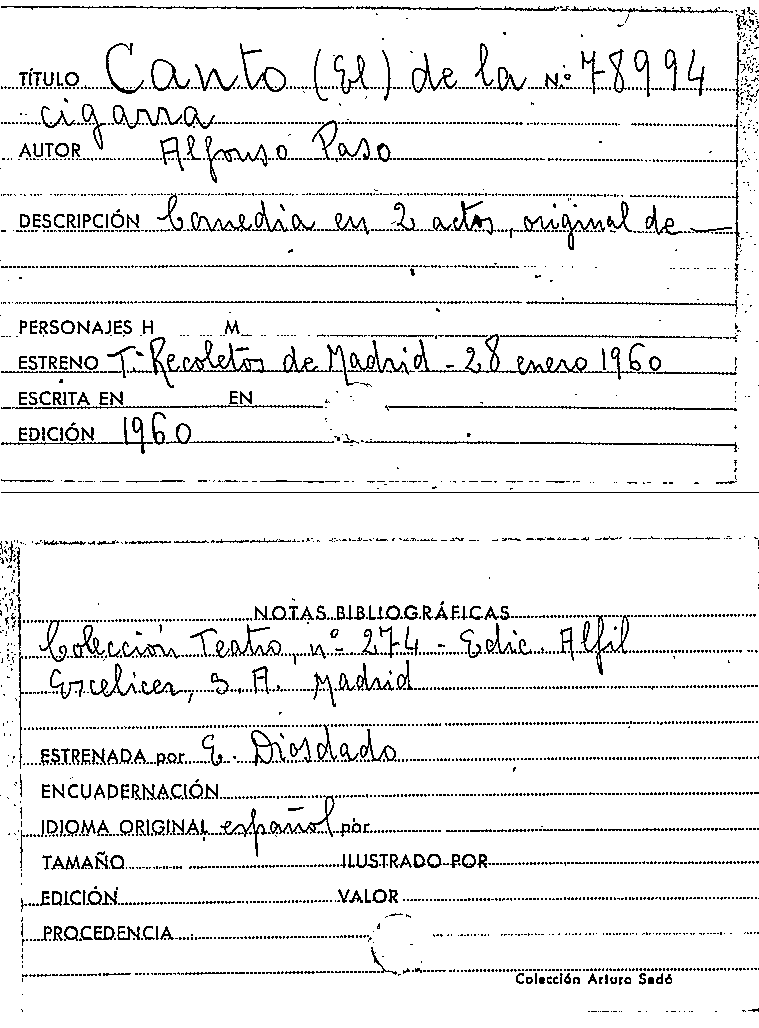 TÍTULO Canto (El) de la Nº 78994
cigarra
AUTOR Alfonso Paso
DESCRIPCIÓN Comedia en 2 actos, original de —
PERSONAJES H M
ESTRENO T. Recoletos de Madrid - 28 enero 1960
ESCRITA EN EN
EDICIÓN 1960
NOTAS BIBLIOGRÁFICAS
Colección Teatro, nº 274 - Edic. Alfil
Escelicer, S. A. Madrid
ESTRENADA por E. Diosdado
ENCUADERNACIÓN
IDIOMA ORIGINAL español por
TAMAÑO ILUSTRADO POR
EDICIÓN VALOR
PROCEDENCIA
Colección Arturo Sedó